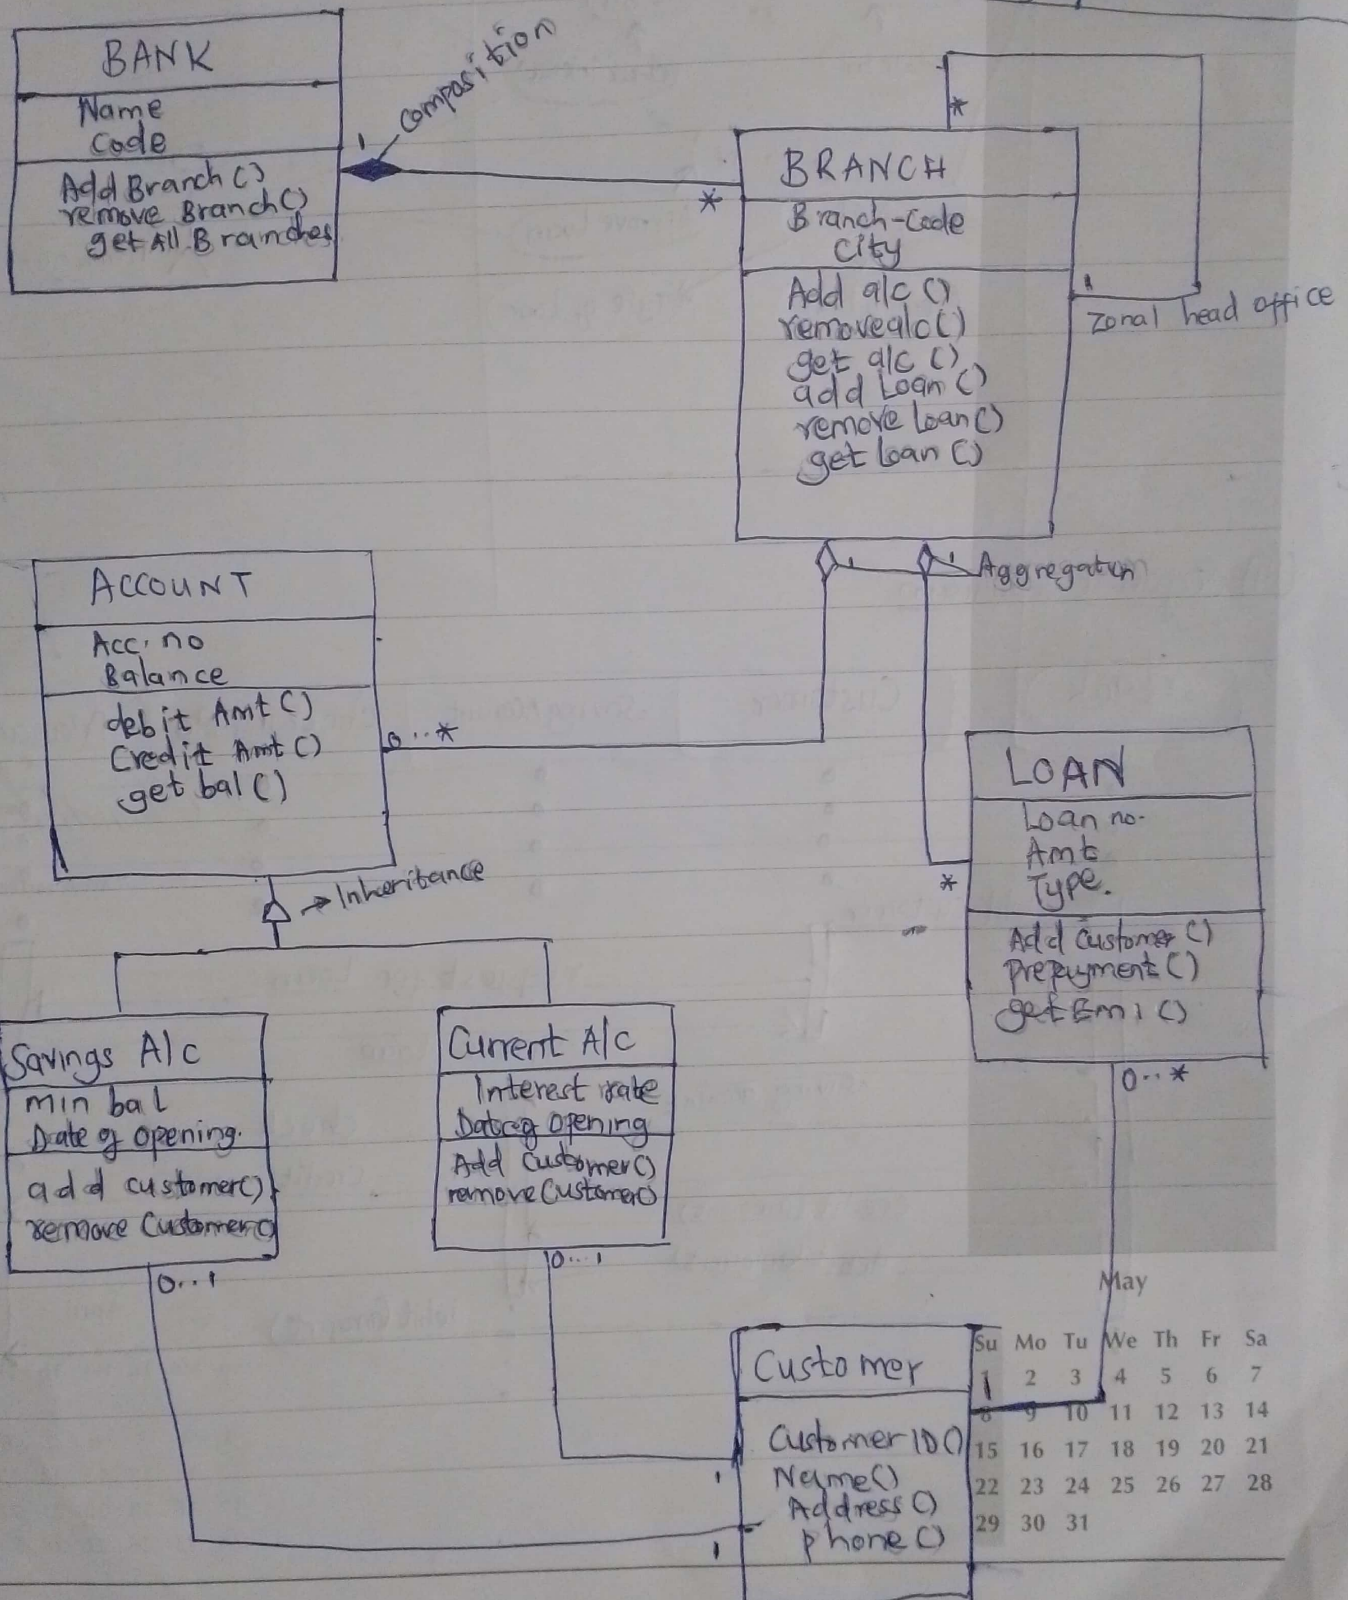 BANK
Name
Code
Add Branch ()
remove Branch ()
get All Branches
1
composition
*
*
BRANCH
Branch-Code
City
Add a/c ()
remove a/c ()
get a/c ()
add Loan ()
remove loan ()
get loan ()
1
Zonal head office
1
1
Aggregation
ACCOUNT
Acc. no
Balance
debit Amt ()
Credit Amt ()
get bal ()
0..*
Inheritance
LOAN
Loan no.
Amt
Type.
Add Customer ()
Prepayment ()
get Emi ()
*
0..*
Savings A/c
min bal
Date of opening.
add customer()
remove Customer()
0..1
Current A/c
Interest rate
Date of opening
Add Customer()
remove Customer()
0...1
Customer
Customer ID ()
Name ()
Address ()
phone ()
1
1
1
May
Su Mo Tu We Th Fr Sa
1 2 3 4 5 6 7
8 9 10 11 12 13 14
15 16 17 18 19 20 21
22 23 24 25 26 27 28
29 30 31